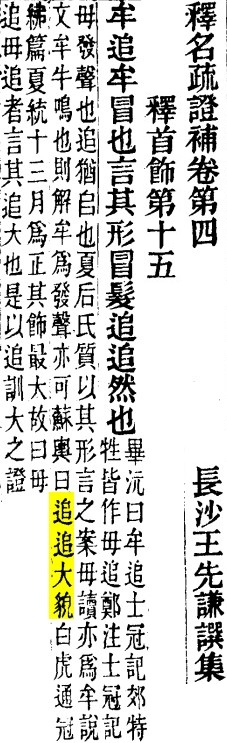 釋名疏證補卷第四　長沙王先謙譔集
釋首飾第十五
牟追牟冒也言其形冒髮追追然也
畢沅曰牟追士冠記郊特
牲皆作毋追鄭注士冠記
毋發聲也追猶自也夏后氏質以其形言之案毋讀亦爲牟說
文牟牛鳴也則解牟爲發聲亦可蘇輿曰追追大貌白虎通冠
紼篇夏統十三月爲正其飾最大故曰毋
追毋追者言其追大也是以追訓大之證